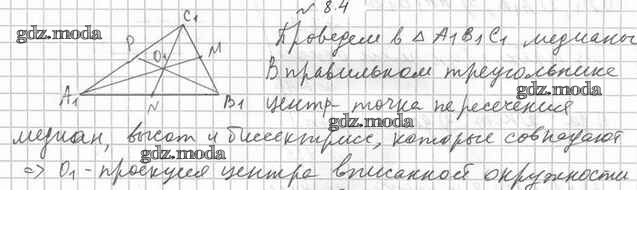 № 8.4
C₁
gdz.moda
P
M
O₁
Проведем в Δ A₁B₁C₁ медианы
gdz.moda
В правильном треугольнике
gdz.moda
A₁
N
B₁
центр - точка пересечения
gdz.moda
медиан, высот и биссектрис, которые совпадают
gdz.moda
=> O₁ - проекция центра вписанной окружности
gdz.moda